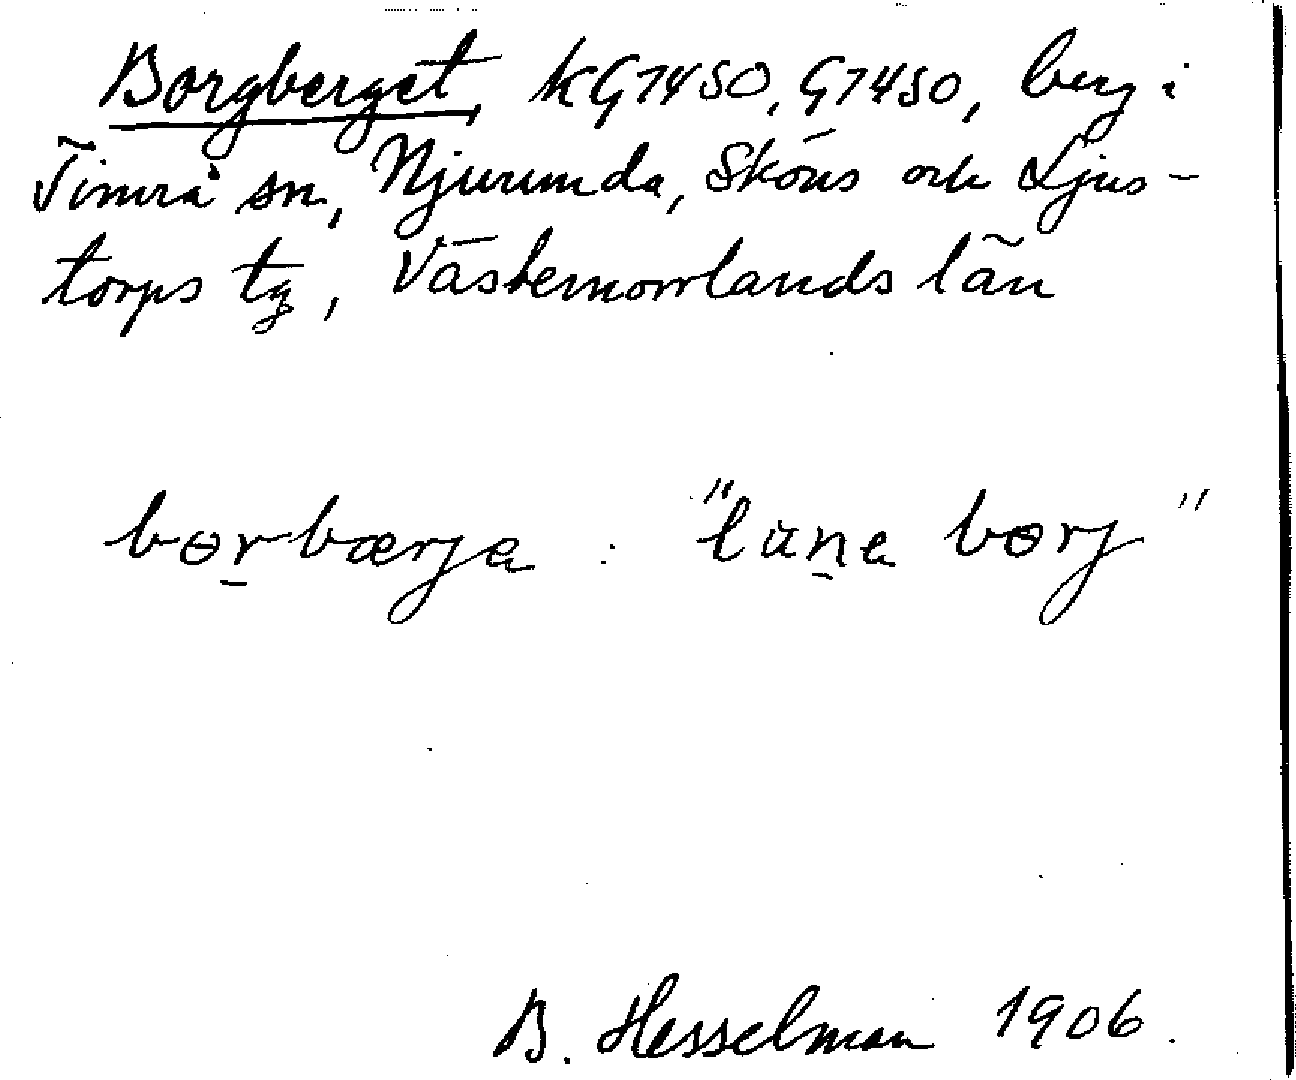 Borgberget, KG7450, G7450, berg i
Timrå sn, Njurunda, Sköns och Ljus-
torps tg, Västernorrlands län
bɵrbærja : "luna bɵrj"
B. Hesselman 1906.